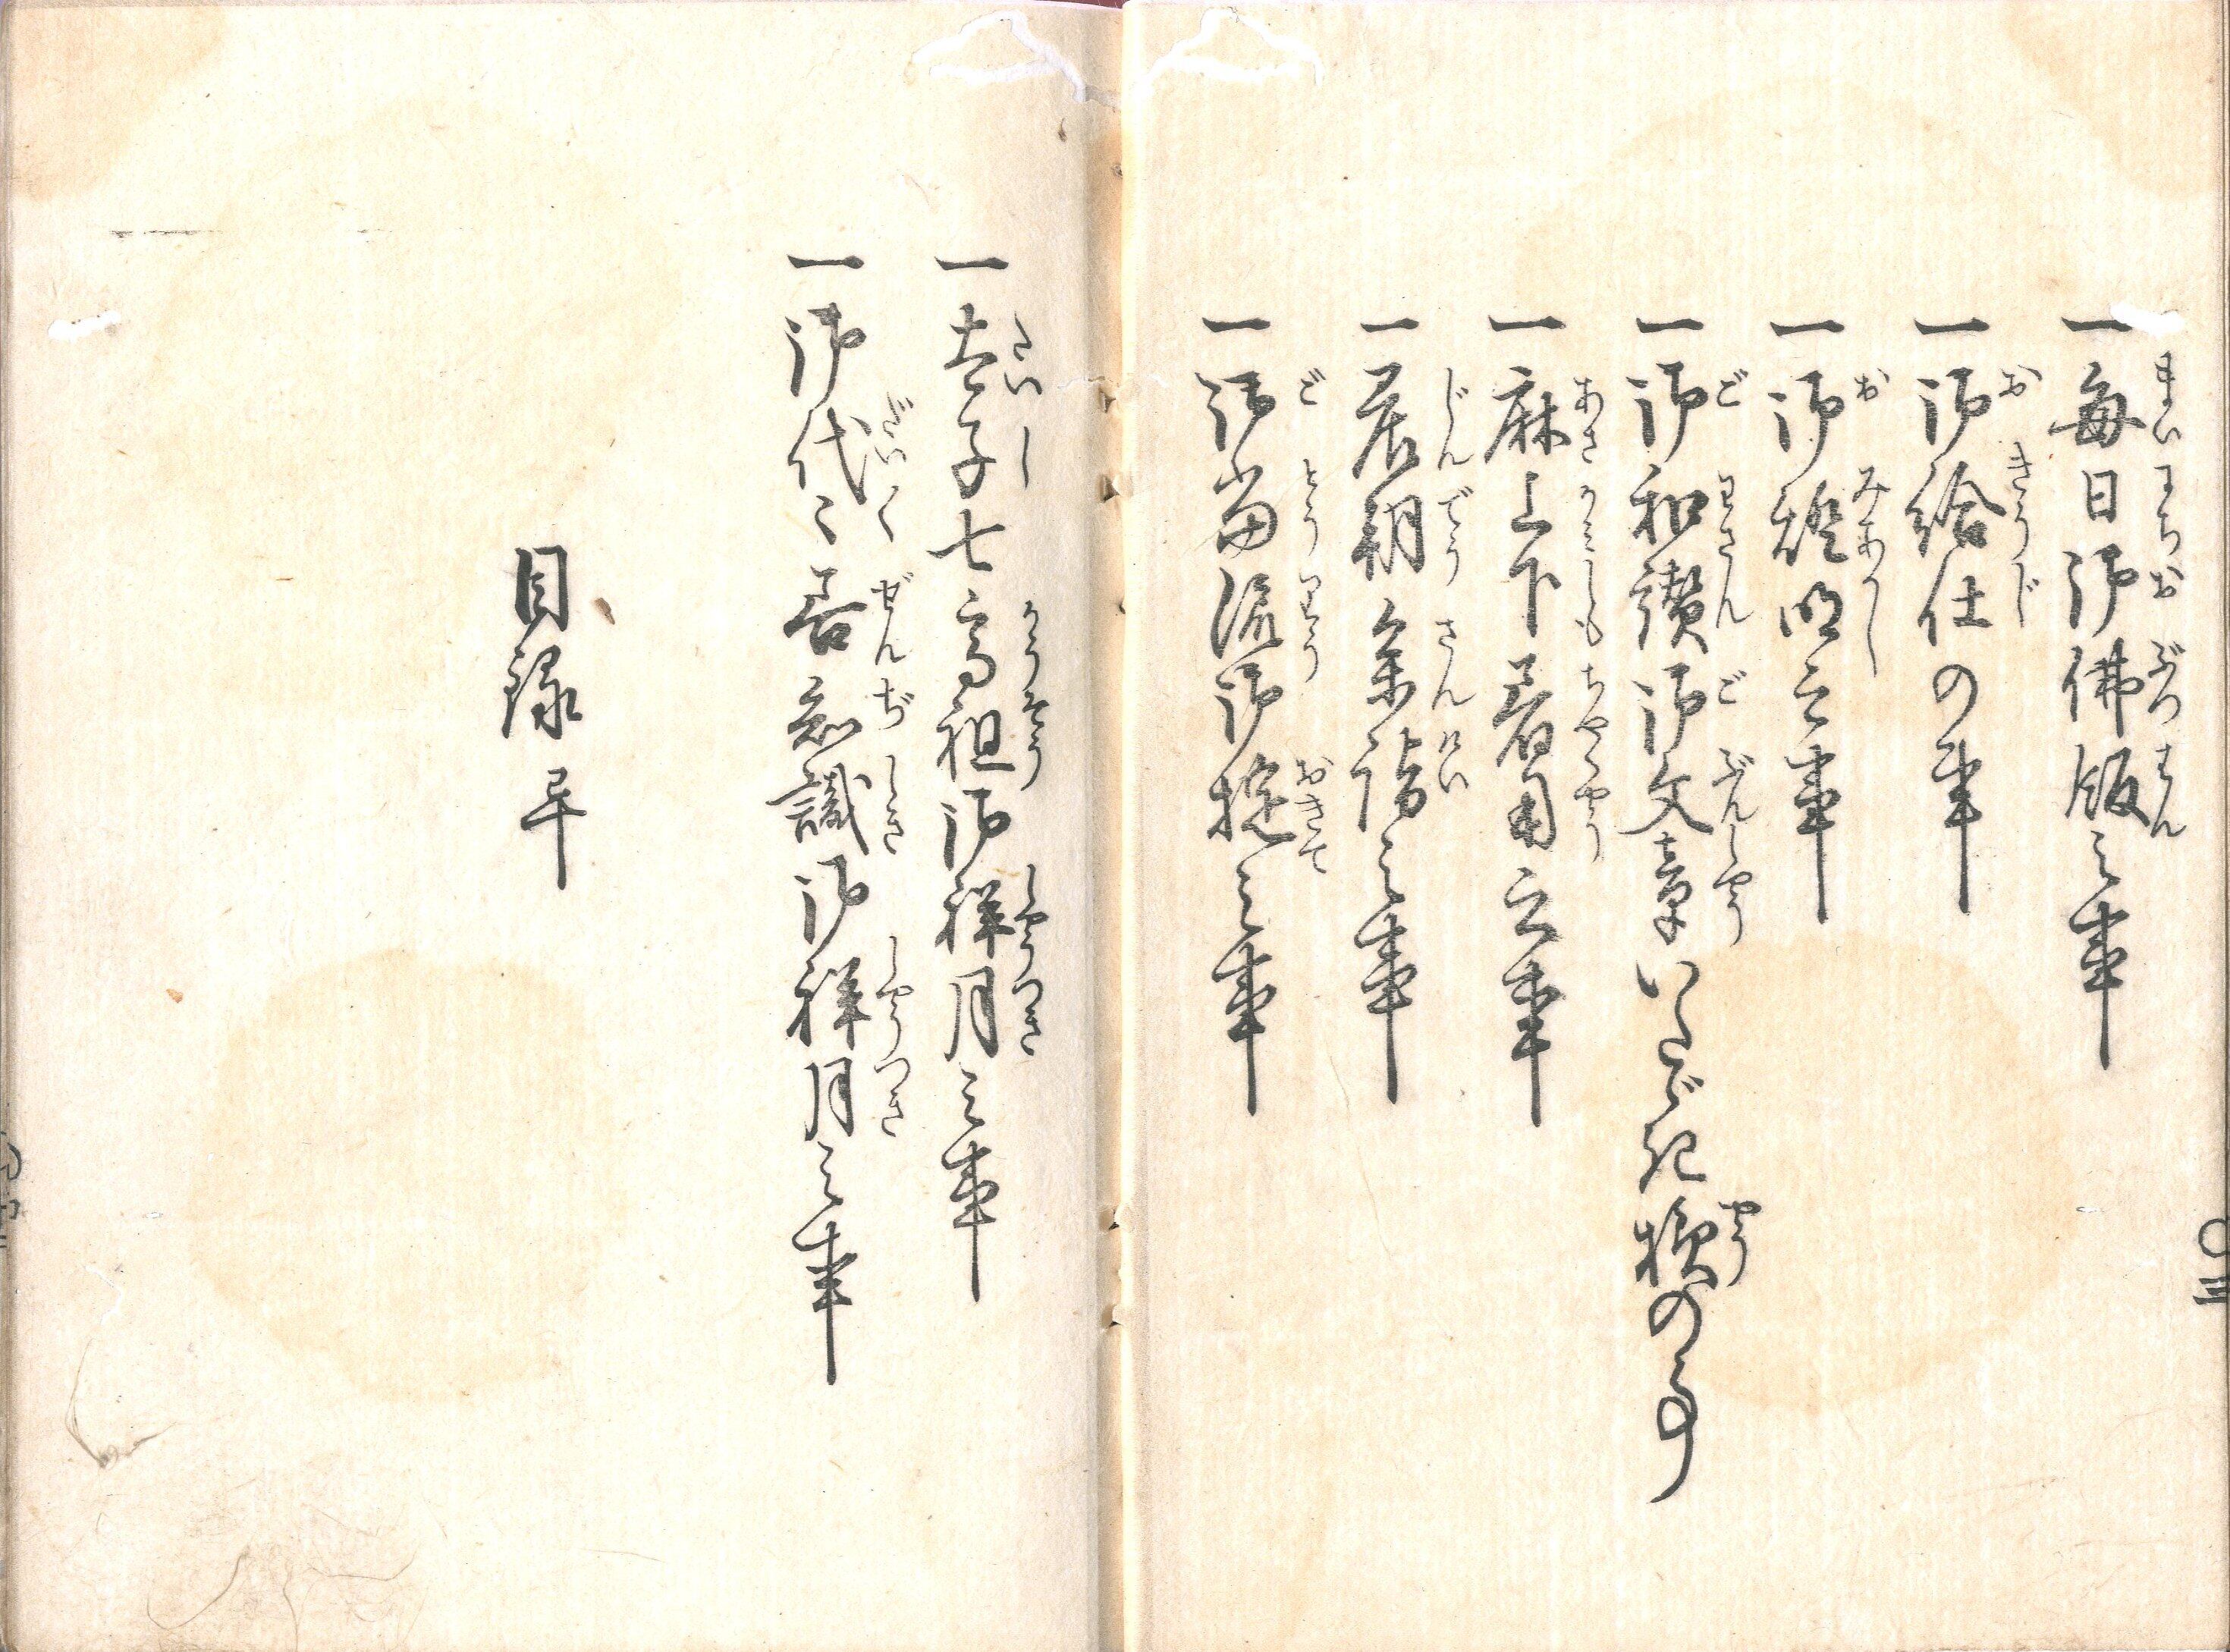 一毎日御佛飯之事
一御給仕の事
一御燈明之事
一御和讃御文章いたゞき様の事
一麻上下着用之事
一晨朝参詣之事
一御当流御掟之事
一太子七高祖御祥月之事
一御代々善知識御祥月之事
目録畢